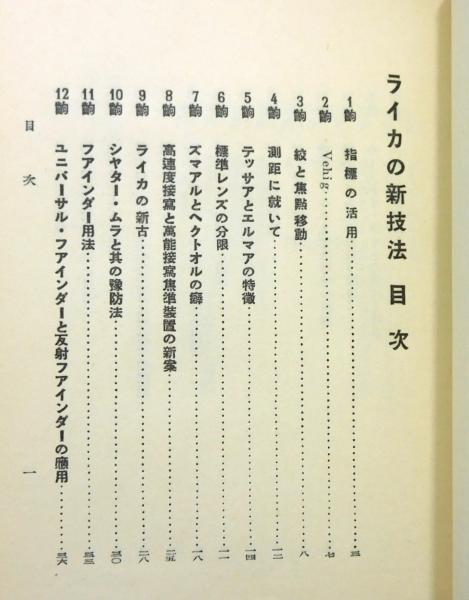 ライカの新技法 目次
1 齣 指標の活用 三
2 齣 Vehig 七
3 齣 絞と焦點移動 八
4 齣 測距に就いて 一二
5 齣 テッサアとエルマアの特徴 一四
6 齣 標準レンズの分限 一一
7 齣 ズマアルとヘクトオルの癖 一八
8 齣 高速度接寫と萬能接寫焦準裝置の新案 二五
9 齣 ライカの新古 二八
10 齣 シヤター・ムラと其の豫防法 三〇
11 齣 フアインダー用法 三三
12 齣 ユニバーサル・フアインダーと反射フアインダーの應用 三六
目次 一